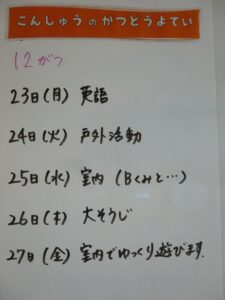 こんしゅうのかつどうよてい
12がつ
23日(月) 英語
24日(火) 戸外活動
25日(水) 室内 (Bくみと…)
26日(木) 大そうじ
27日(金) 室内でゆっくり遊びます.